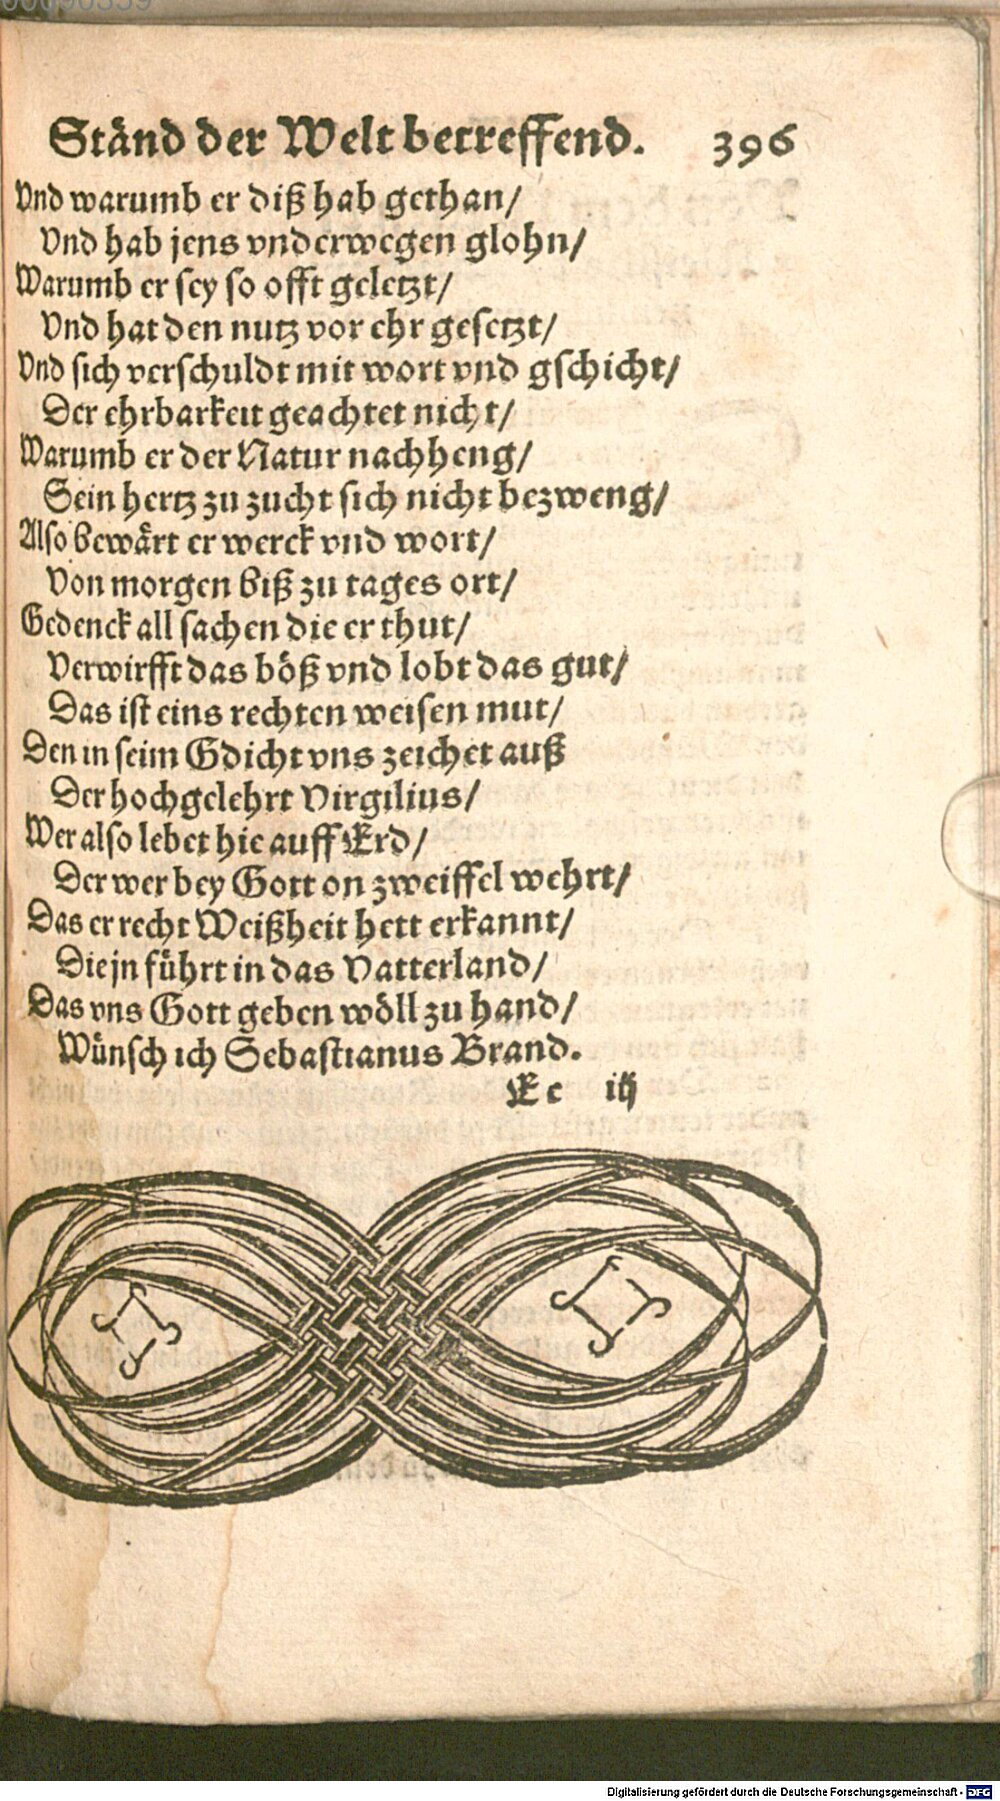 Ständ der Welt betreffend. 396
Vnd warumb er diß hab gethan/
Vnd hab jens vnderwegen glohn/
Warumb er sey so offt geletzt/
Vnd hat den nutz vor ehr gesetzt/
Vnd sich verschuldt mit wort vnd gschicht/
Der ehrbarkeit geachtet nicht/
Warumb er der Natur nachheng/
Sein hertz zu zucht sich nicht bezweng/
Also bewärt er werck vnd wort/
Von morgen biß zu tages ort/
Gedenck all sachen die er thut/
Verwirfft das böß vnd lobt das gut/
Das ist eins rechten weisen mut/
Den in seim Gdicht vns zeichet auß
Der hochgelehrt Virgilius/
Wer also lebet hie auff Erd/
Der wer bey Gott on zweiffel wehrt/
Das er recht Weißheit hett erkannt/
Die jn führt in das Vatterland/
Das vns Gott geben wöll zu hand/
Wünsch ich Sebastianus Brand.
Ee iij
Digitalisierung gefördert durch die Deutsche Forschungsgemeinschaft - DFG